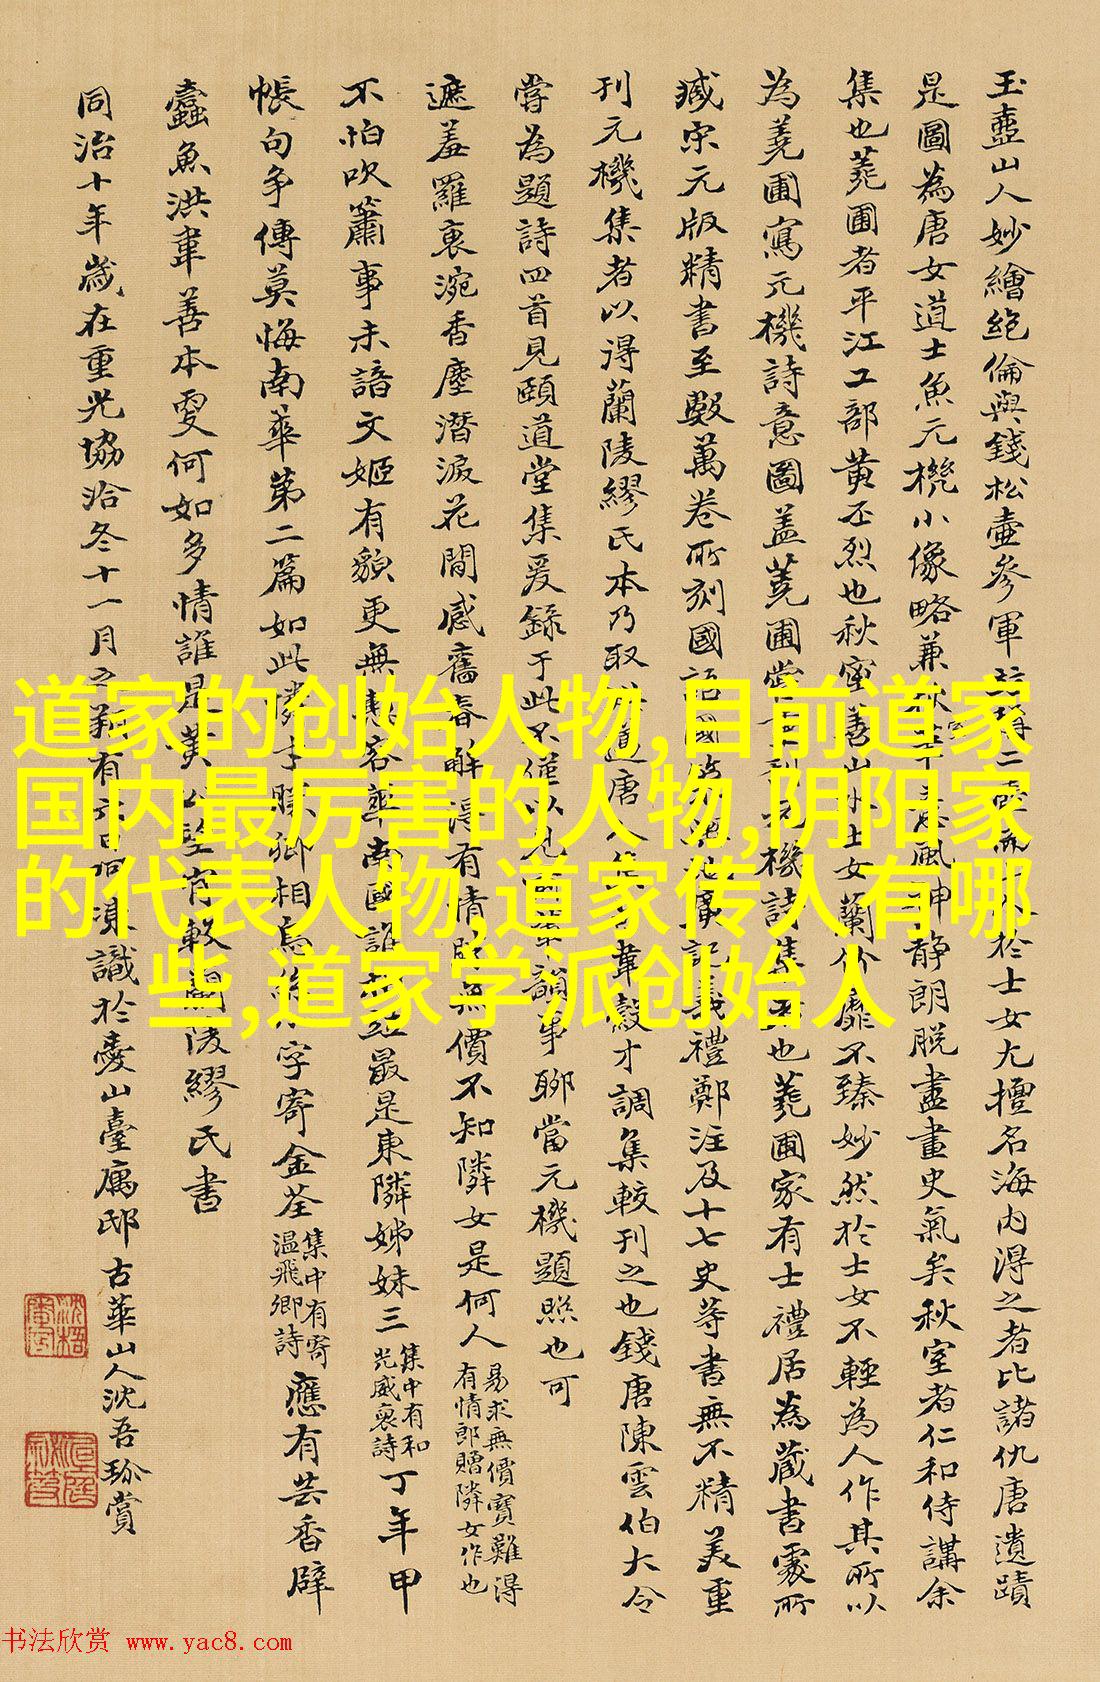 玉壺山人妙繪絕倫與錢松壺參軍 於士女尤擅名海內得之者比諸仇唐遺蹟
是圖為唐女道士魚元機小像略兼 風神靜朗脫盡畫史氣矣秋室者仁和侍講余
集也蕘圃者平江工部黃丕烈也秋室善山水士女蘭竹靡不臻妙然於士女不輕為人作其所以
為蕘圃寫元機詩意圖蓋蕘圃 元機詩集 也蕘圃家有士禮居為藏書處所
臧宋元版精書至數萬卷所刻國語國 禮鄭注及十七史等書無不精美重
刊元機集者以得蘭陵繆氏本乃取 道唐人 韋縠才調集較刊之也錢唐陳雲伯大令
嘗為題詩四首見頤道堂集爰錄于此不僅以見 韻事聊當元機題照也可
遮羞羅衷涴香塵潛淚花間感舊春解得有情 無價不知隣女是何人
易求無價寶難得
有情郎贈隣女作也
不怕吹簫事未諳文姬有貌更無 南國誰 最是東隣姊妹三
集中有和
光威裒詩
丁年甲
帳句争傳莫悔南華第二篇如此隣 卿相 字寄金荃
集中有寄
温飛卿詩
應有芸香辟
蠹魚洪韋善本更何如多情誰是黃 蘭陵繆氏書
同治十年歲在重光協洽冬十一月之 有六日 凍識於 山臺寓邸古華山人沈吾珍賞
道家的创始人物,目前道家
国内最厉害的人物,阴阳家
的代表人物,道家传人有哪
些,道家学派创始人
书法欣赏 www.yac8.com